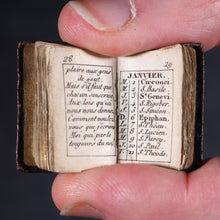 28
plaire aux gens
de gout.
Mais s'il faut que
chacun souscrive
Aux lois qu'ici
nous nous donnons
Comment voulez
vous que j'écrive
Moi qui parle
toujours du nez.
29
JANVIER.
M. 1 Circonci.
J. 2 S. Basile.
V. 3 Ste Genevi.
S. 4 S. Rigober.
D. 5 S. Simeon.
6 Epiphan.
7 S. Théau.
8 S. Lucien.
9 S. Pierre.
10 S. Paul.
11 S. Théodo.